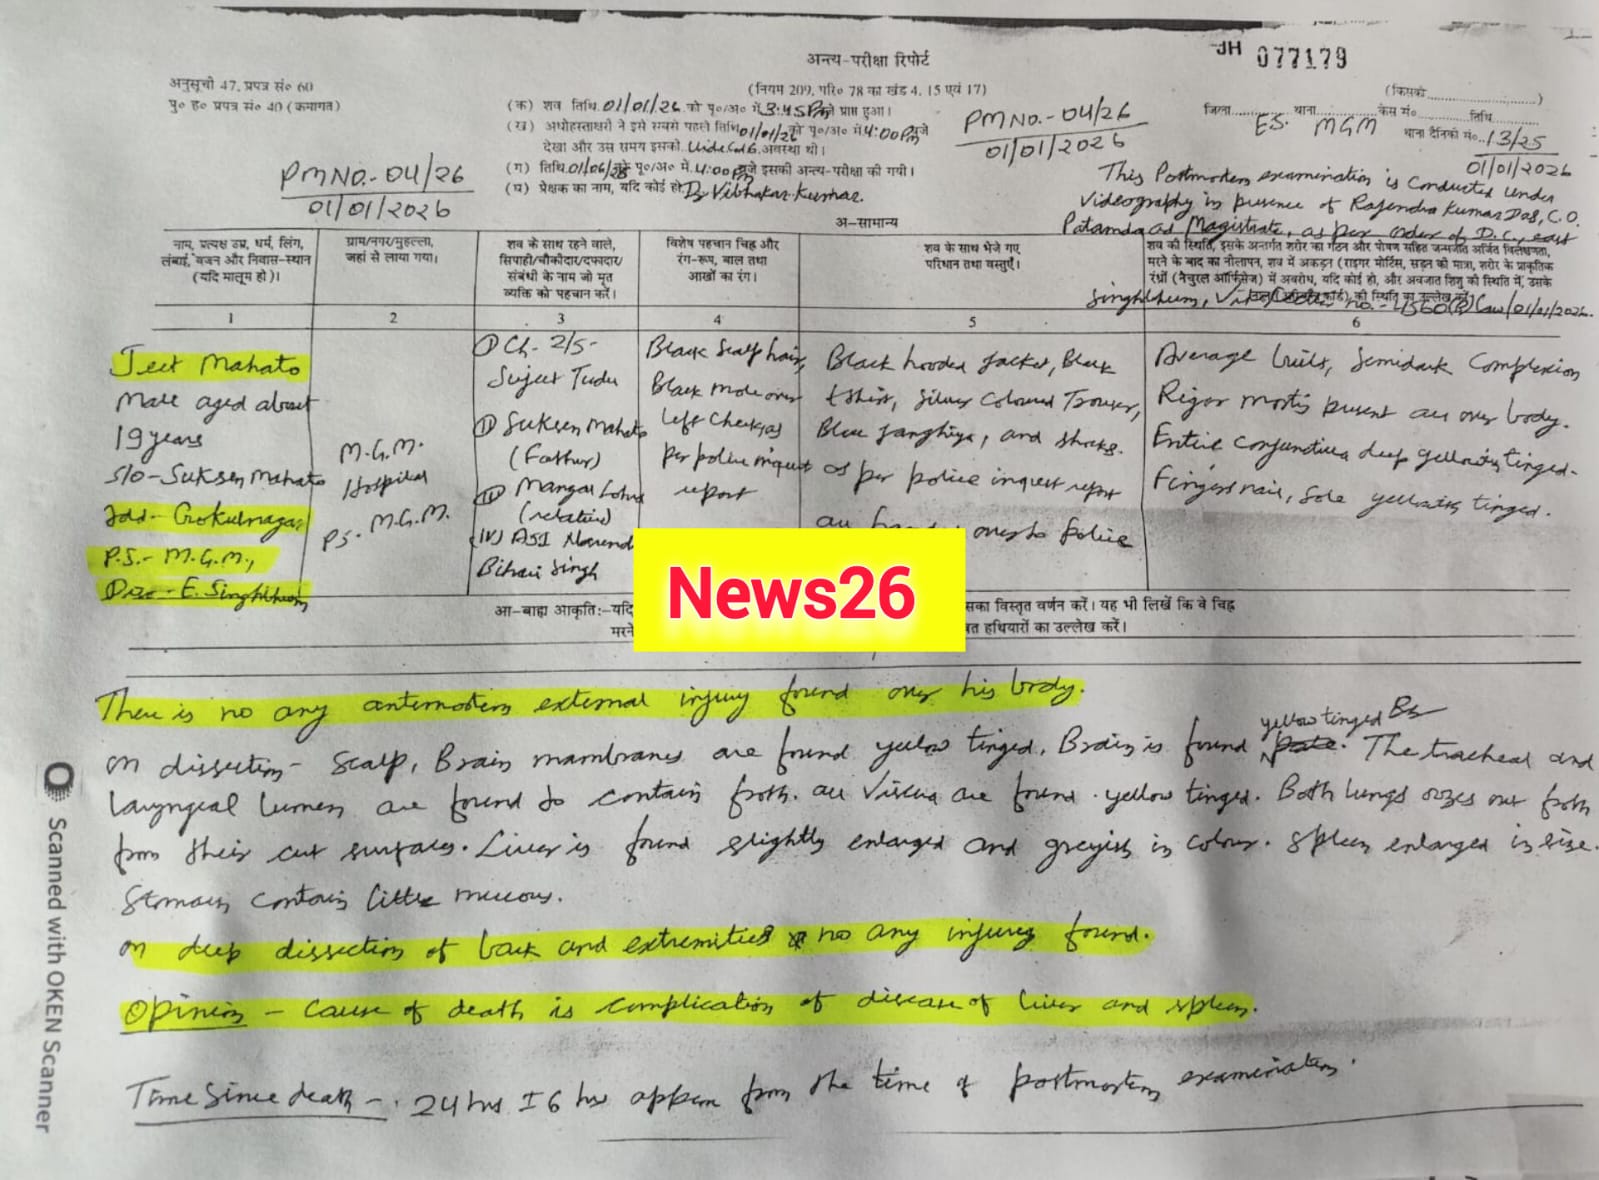 JH 077179
अन्त्य-परीक्षा रिपोर्ट
अनुसूची 47, प्रपत्र सं० 60
पु० ह० प्रपत्र सं० 40 (क्रमागत)
(नियम 209, परि० 78 का खंड 4, 15 एवं 17)
(क) शव तिथि 01/01/26 को पू०/अ० में 3:45 PM प्राप्त हुआ।
(ख) अधोहस्ताक्षरी ने इसे सबसे पहले तिथि 01/01/26 को पू०/अ० में 4:00 PM बजे
देखा और उस समय इसकी अवस्था थी।
(ग) तिथि को पू०/अ० में 4:00 PM बजे इसकी अन्त्य-परीक्षा की गयी।
(घ) प्रेक्षक का नाम, यदि कोई हो Dr Vibhakar Kumar.
PM NO.- 04/26
01/01/2026
PM NO.- 04/26
01/01/2026
(किसको)
जिला E.S. थाना MGM केस सं० तिथि
थाना दैनिकी सं० 13/25
01/01/2026
This Postmortem examination is conducted under
videography in presence of Rajendra Kumar Das, C.O.
Patamda as Magistrate, as per order of D.C., east
Singhbhum, no.- 01/01/2026.
अ-सामान्य
नाम, प्रत्यक्ष उम्र, धर्म, लिंग,
लंबाई, वजन और निवास-स्थान
(यदि मालूम हो)।
ग्राम/नगर/मुहल्ला,
जहां से लाया गया।
शव के साथ रहने वाले,
सिपाही/चौकीदार/दफादार/
संबंधी के नाम जो मृत
व्यक्ति को पहचान करें।
विशेष पहचान चिह्न और
रंग-रूप, बाल तथा
आखों का रंग।
शव के साथ भेजे गए
परिधान तथा वस्तुएँ।
शव की स्थिति, इसके अन्तर्गत शरीर का गठन और पोषण सहित जन्मजात अर्जित विलक्षणता,
मरने के बाद का नीलापन, शव में अकड़न (राइगर मोर्टिस, सड़न की मात्रा, शरीर के प्राकृतिक
रंध्रों (नैचुरल ऑर्फिसेज) में अवरोध, यदि कोई हो, और अवजात शिशु की स्थिति में, उसके
की स्थिति का उल्लेख करें)
1 2 3 4 5 6
Jeet Mahato
Male aged about
19 years
S/O- Suksen Mahato
Add- Gokulnagar
P.S.- M.G.M.,
Dist- E. Singhbhum
M.G.M.
Hospital
P.S. M.G.M.
(I) Ch- 2/5-
Sujeet Tudu
(II) Suksen Mahato
(Father)
(III) Mangal Lohra
(relative)
(IV) ASI
Bihari Singh
Black Scalp hair,
Black mole over
left Cheek as
per police inquest
report
Black hooded Jacket, Black
t shirt, Silver Coloured Trouser,
Blue Janghiya, and
as per police inquest report
all over to Police
Average built, Semidark Complexion
Rigor mortis present all over body.
Entire conjunctiva deep yellowish tinged.
Fingers nail, Sole yellowish tinged.
News26
आ-बाह्य आकृति:-यदि
सका विस्तृत वर्णन करें। यह भी लिखें कि वे चिह्न
मरने
त हथियारों का उल्लेख करें।
There is no any antemortem external injury found over his body.
On dissection- Scalp, Brain mambranes are found yellow tinged. Brain is found yellow tinged. The tracheal and
laryngeal lumen are found to contain froth. all Viscera are found yellow tinged. Both lungs oozes out froth
from their cut surfaces. Liver is found slightly enlarged and greyish in colour. Spleen enlarged in size.
Stomach contain little mucous.
On deep dissection of back and extremities no any injury found.
Opinion - cause of death is complication of disease of liver and spleen.
Time Since death - 24 hrs ± 6 hrs appox from the time of postmortem examination.
Scanned with OKEN Scanner